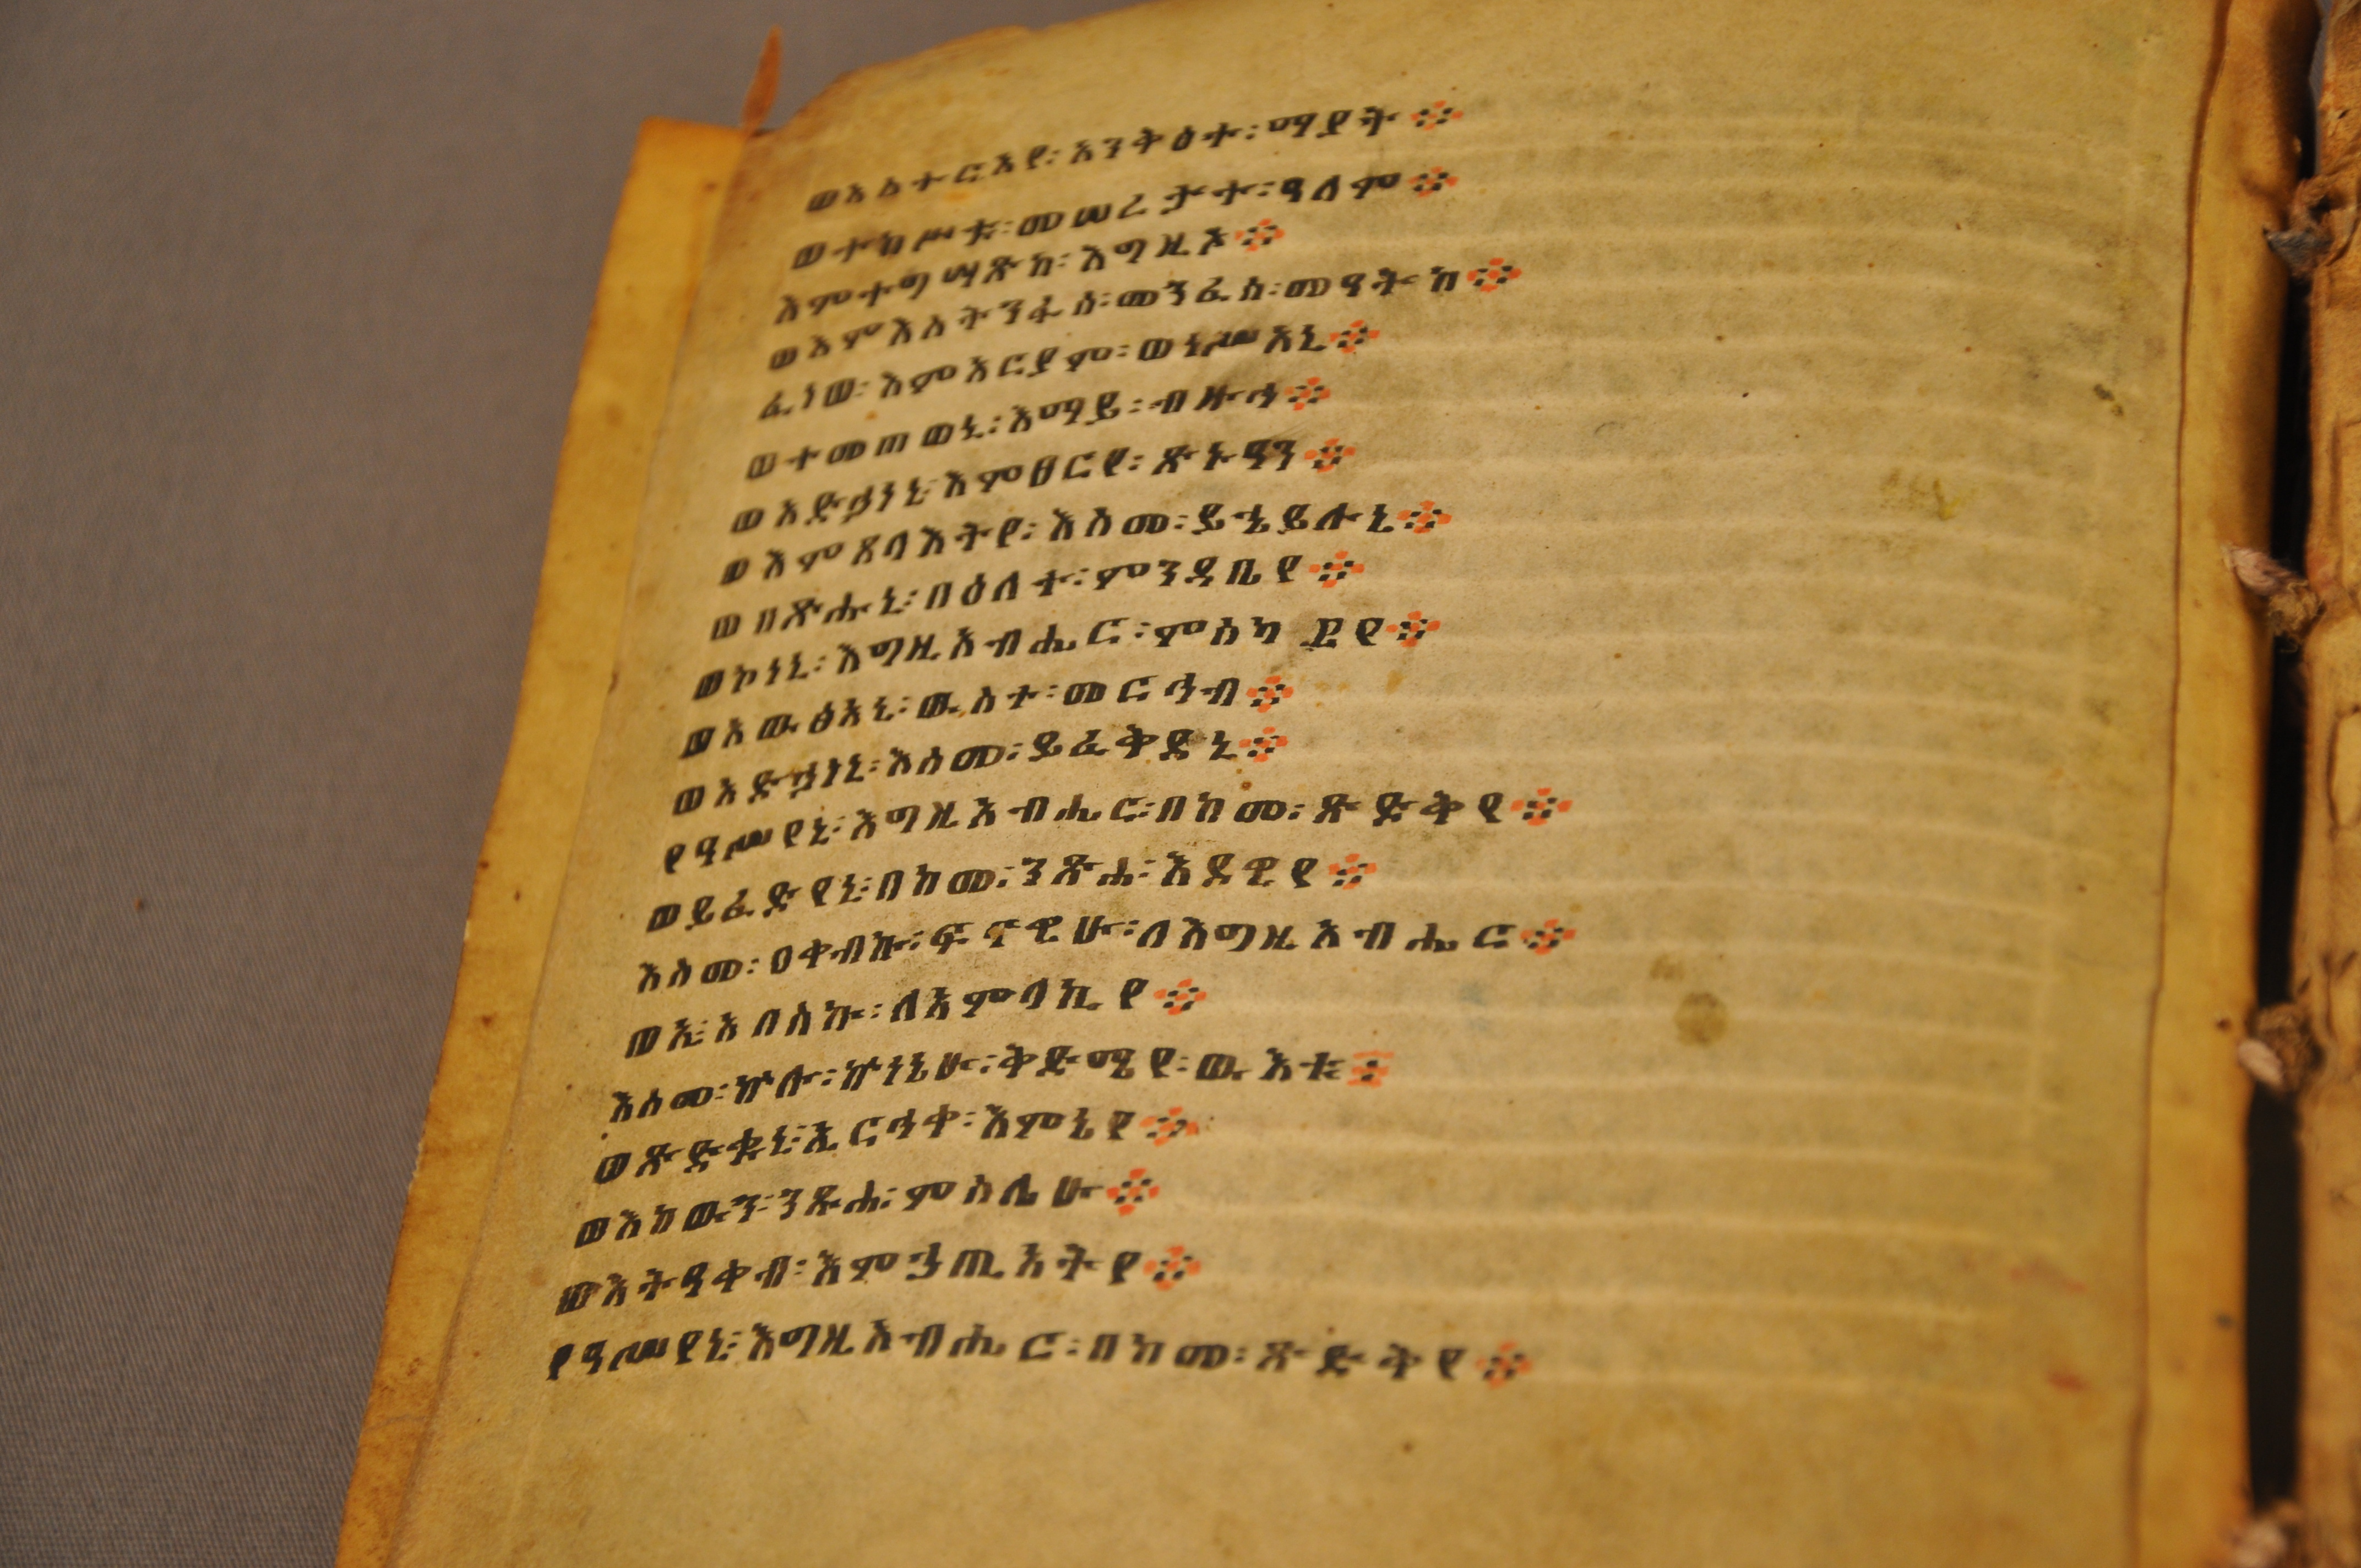 ወአስተርአየ፡ አንቅዕተ፡ ማያት ፨
ወተከሥቱ፡ መሠረታተ፡ ዓለም ፨
እምተግሣጽከ፡ እግዚኦ ፨
ወእምእስትንፋሰ፡ መንፈስ፡ መዓትከ ፨
ፈነወ፡ እምአርያም፡ ወነሥአኒ ፨
ወተመጠወኒ፡ እማይ፡ ብዙኅ ፨
ወአድኃነኒ፡ እምፀርየ፡ ጽኑዓን ፨
ወእምጸላእትየ፡ እስመ፡ ይኄይሉኒ ፨
ወበጽሑኒ፡ በዕለተ፡ ምንዳቤየ ፨
ወኮነኒ፡ እግዚአብሔር፡ ምስካየየ ፨
ወአውፅአኒ፡ ውስተ፡ መርኅብ ፨
ወአድኃነኒ፡ እስመ፡ ይፈቅደኒ ፨
የዓሥየኒ፡ እግዚአብሔር፡ በከመ፡ ጽድቅየ ፨
ወይፈድየኒ፡ በከመ፡ ንጽሐ፡ እደዊየ ፨
እስመ፡ ዐቀብኩ፡ ፍኖቶ፡ ለእግዚአብሔር ፨
ወኢ፡ አበስኩ፡ ለአምላኪየ ፨
እስመ፡ ኵሉ፡ ኵነኔሁ፡ ቅድሜየ፡ ውእቱ ፨
ወጽድቁኒ፡ ኢርኅቀ፡ እምኔየ ፨
ወእከውን፡ ንጹሐ፡ ምስሌሁ ፨
ወእትዓቀብ፡ እምኃጢአትየ ፨
የዓሥየኒ፡ እግዚአብሔር፡ በከመ፡ ጽድቅየ ፨